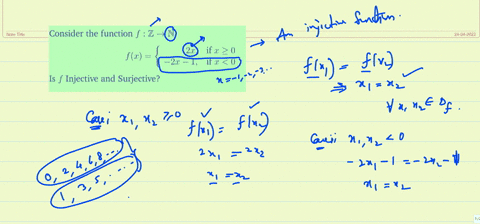 Note Title
24-04-2023
Consider the function f : ℤ → ℕ
f(x) = { 2x, if x ≥ 0
-2x - 1, if x < 0
Is f Injective and Surjective?
x = -1, -2, -3, ...
An injective function.
f(x₁) = f(x₂)
⇒ x₁ = x₂
∀ x₁, x₂ ∈ D_f.
Case i x₁, x₂ ≥ 0
f(x₁) = f(x₂)
2x₁ = 2x₂
x₁ = x₂
0, 2, 4, 6, 8, ...
1, 3, 5, ...
Case ii x₁, x₂ < 0
-2x₁ - 1 = -2x₂ - 1
x₁ = x₂